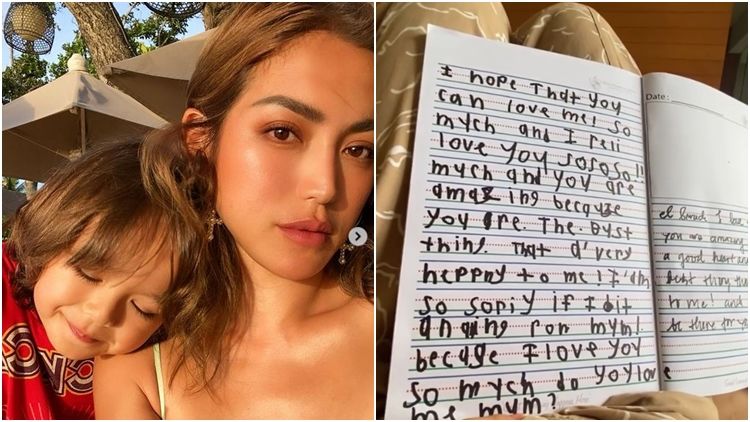 I hope That yoy
can love me! so
mych and I reli
love yoy sososo!!
mych and yoy are
amazing becayse
yoy are. The. byst
thiny. That d'very
heppny to me! I'am
so soriy if I dit
anging ron mym!
becayse I love yoy
so mych do yoy love
me mym?
Date:
I love
you are amazing
a good heart and
best thing
to me! and
be there for